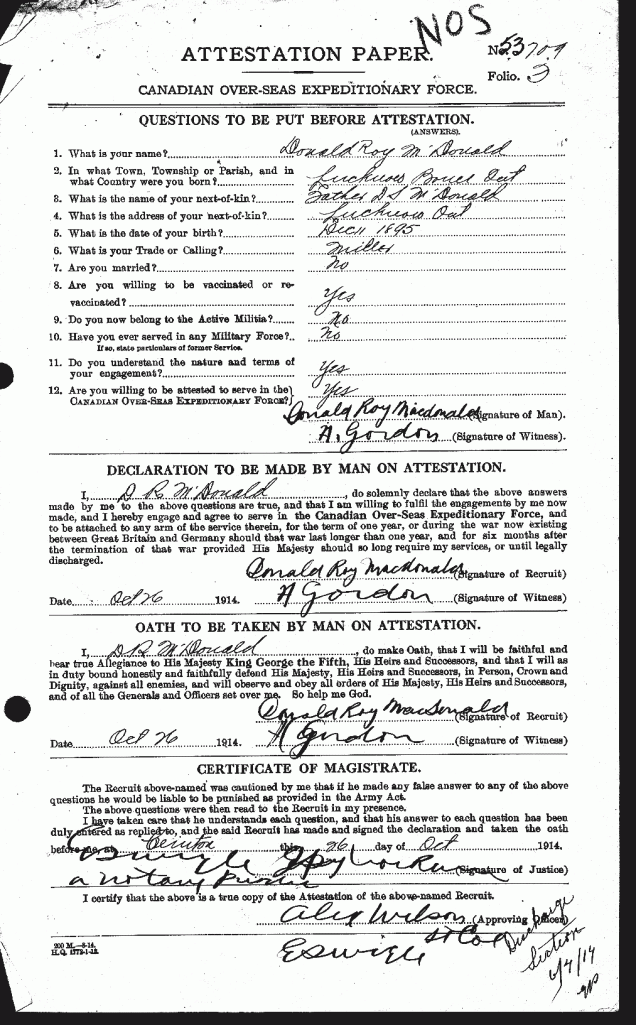 NOS
ATTESTATION PAPER.
No. 53709
Folio. 3
CANADIAN OVER-SEAS EXPEDITIONARY FORCE.
QUESTIONS TO BE PUT BEFORE ATTESTATION.
(ANSWERS).
1. What is your name? Donald Roy McDonald
2. In what Town, Township or Parish, and in
what Country were you born? Lucknow Bruce Ont
3. What is the name of your next-of-kin? Father D S McDonald
4. What is the address of your next-of-kin? Lucknow Ont
5. What is the date of your birth? Dec 11 1895
6. What is your Trade or Calling? Miller
7. Are you married? No
8. Are you willing to be vaccinated or re-
vaccinated? Yes
9. Do you now belong to the Active Militia? No
10. Have you ever served in any Military Force? No
If so, state particulars of former Service.
11. Do you understand the nature and terms of
your engagement? Yes
12. Are you willing to be attested to serve in the
CANADIAN OVER-SEAS EXPEDITIONARY FORCE? Yes
Donald Roy Macdonald (Signature of Man).
A. Gordon (Signature of Witness).
DECLARATION TO BE MADE BY MAN ON ATTESTATION.
I, D R McDonald, do solemnly declare that the above answers
made by me to the above questions are true, and that I am willing to fulfil the engagements by me now
made, and I hereby engage and agree to serve in the Canadian Over-Seas Expeditionary Force, and
to be attached to any arm of the service therein, for the term of one year, or during the war now existing
between Great Britain and Germany should that war last longer than one year, and for six months after
the termination of that war provided His Majesty should so long require my services, or until legally
discharged.
Donald Roy Macdonald (Signature of Recruit)
Date Oct 26 1914. A Gordon (Signature of Witness)
OATH TO BE TAKEN BY MAN ON ATTESTATION.
I, D R McDonald, do make Oath, that I will be faithful and
bear true Allegiance to His Majesty King George the Fifth, His Heirs and Successors, and that I will as
in duty bound honestly and faithfully defend His Majesty, His Heirs and Successors, in Person, Crown and
Dignity, against all enemies, and will observe and obey all orders of His Majesty, His Heirs and Successors,
and of all the Generals and Officers set over me. So help me God.
Donald Roy Macdonald (Signature of Recruit)
Date Oct 26 1914. A Gordon (Signature of Witness)
CERTIFICATE OF MAGISTRATE.
The Recruit above-named was cautioned by me that if he made any false answer to any of the above
questions he would be liable to be punished as provided in the Army Act.
The above questions were then read to the Recruit in my presence.
I have taken care that he understands each question, and that his answer to each question has been
duly entered as replied to, and the said Recruit has made and signed the declaration and taken the oath
before me, at Clinton this 26 day of Oct 1914.
(Signature of Justice)
a Notary Public
I certify that the above is a true copy of the Attestation of the above-named Recruit.
Alex Wilson (Approving Officer)
200 M.-8-14.
H.Q. 1772-1-13.
E S Wigle Lt Col
Discharge
Section